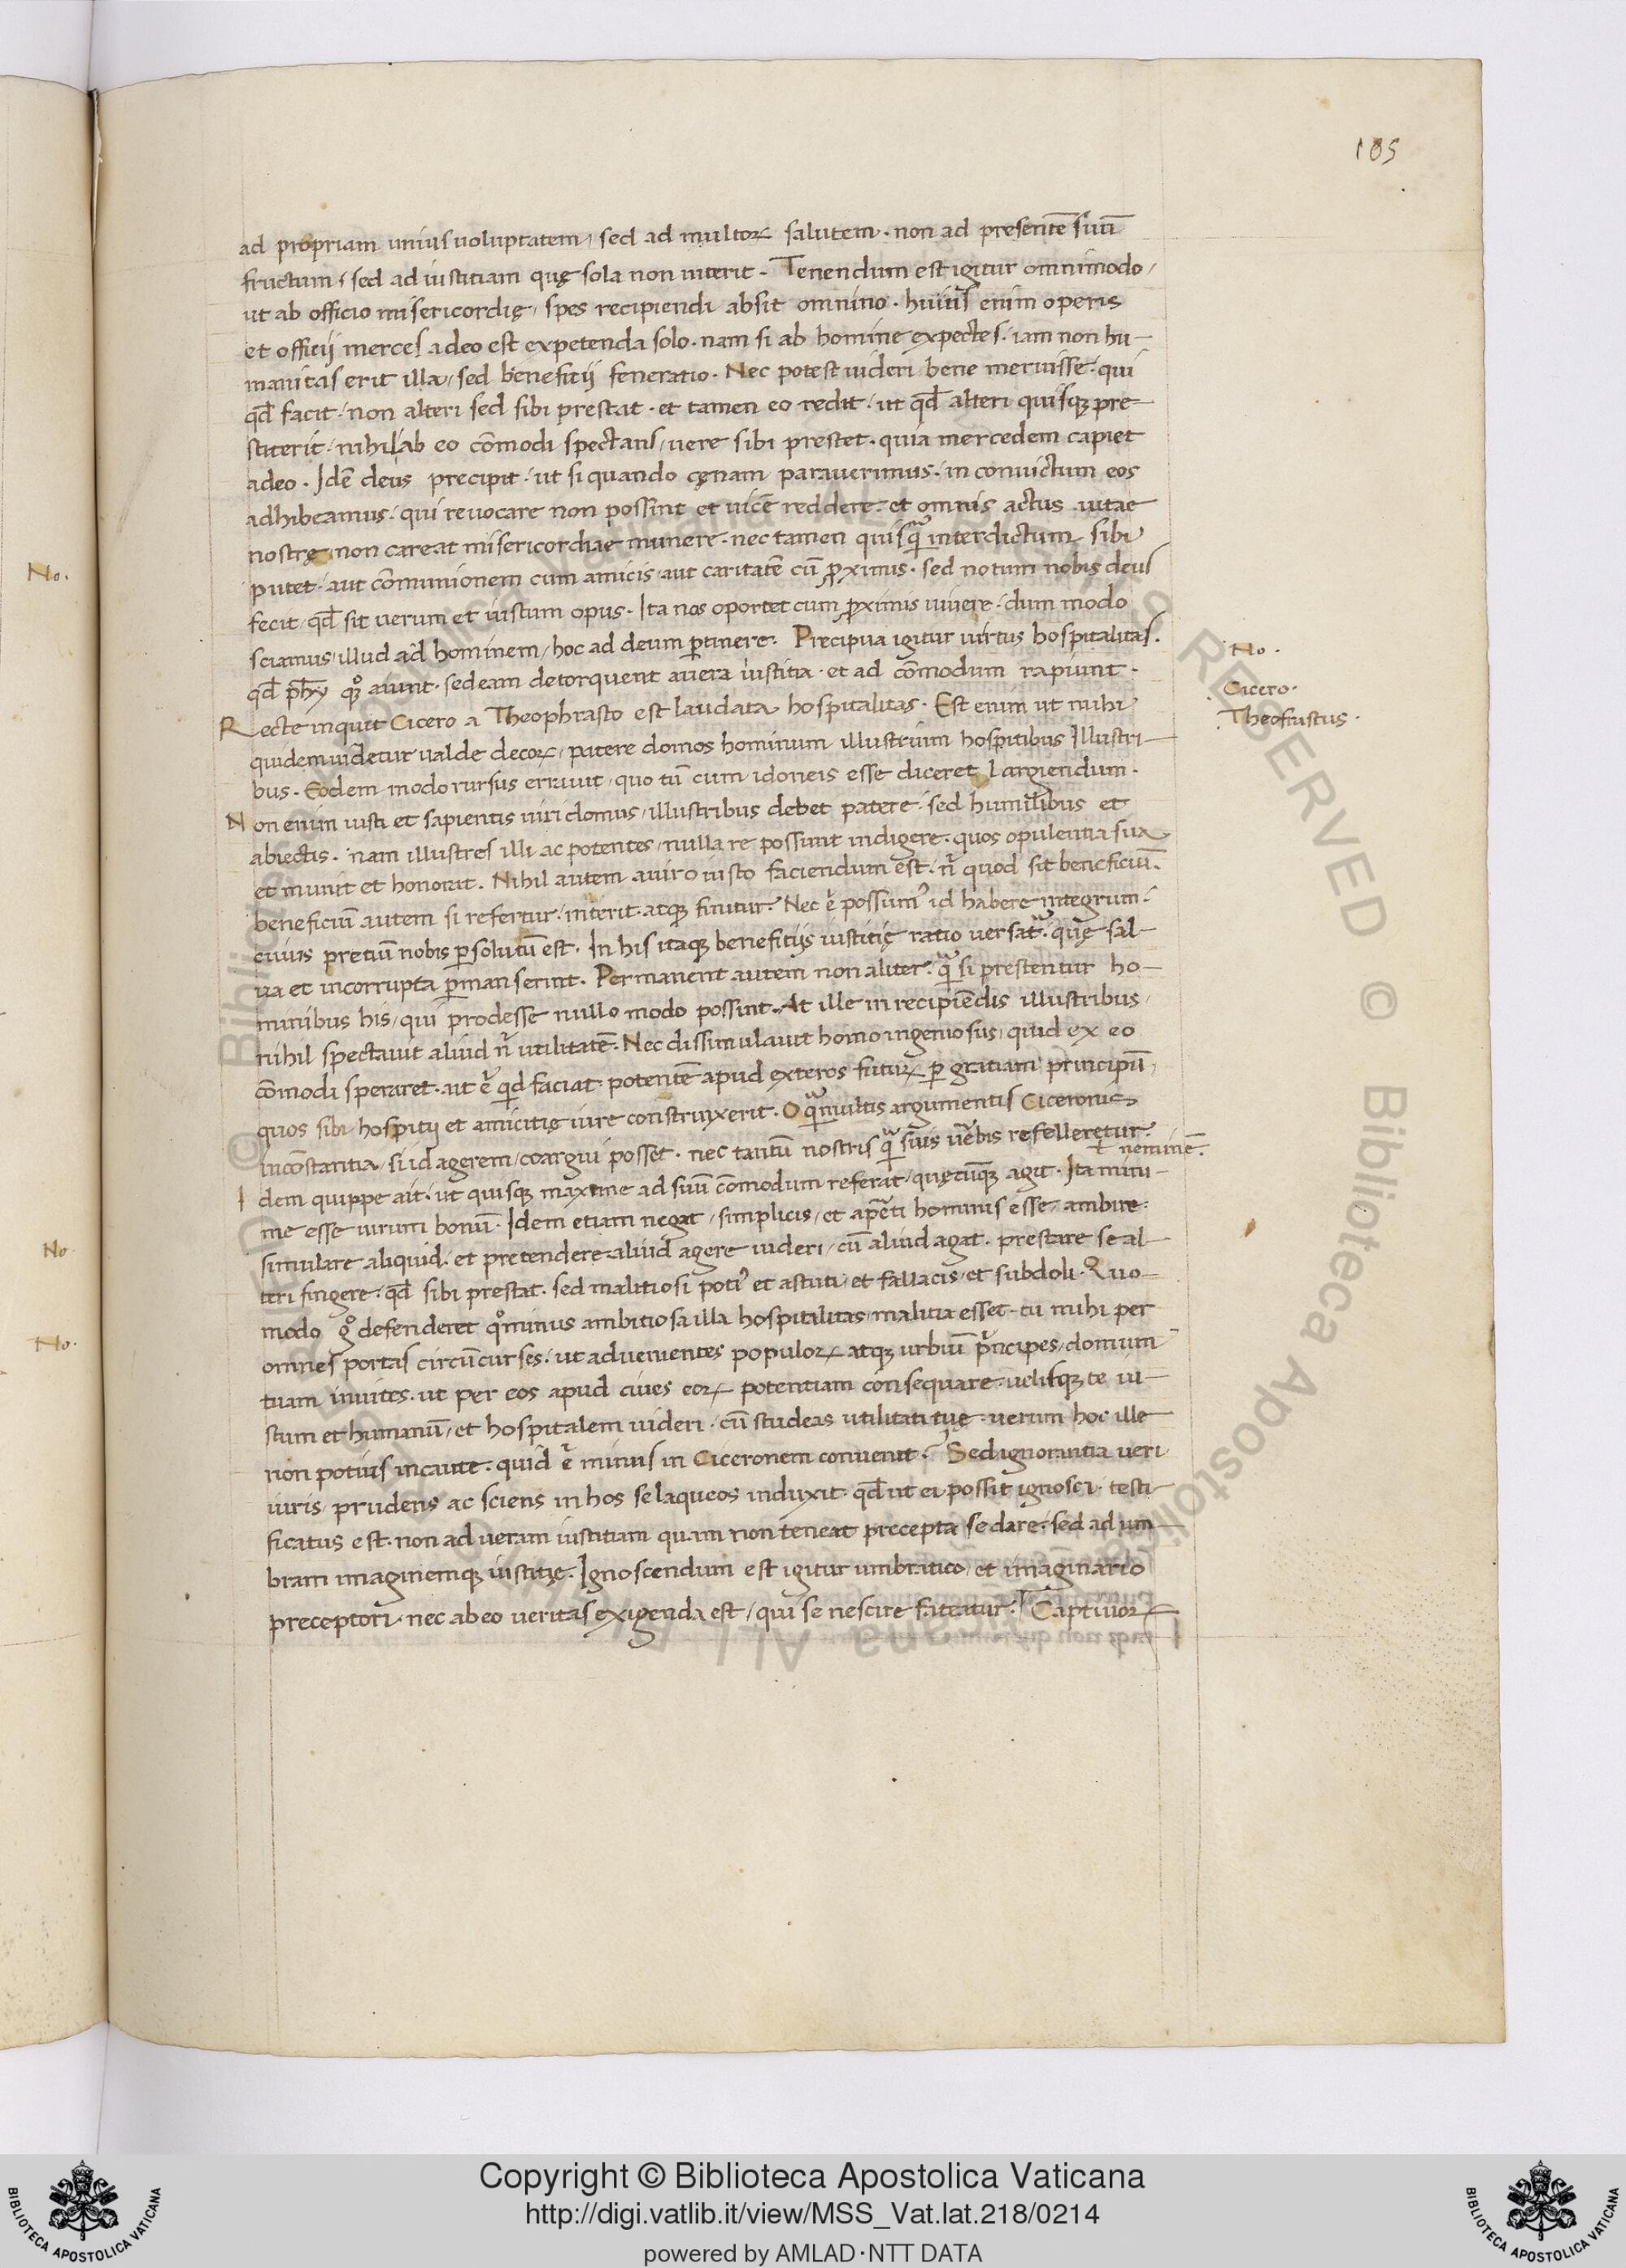 105
ad propriam unius uoluptatem, sed ad multoꝝ salutem. non ad presentē suū
fructum, sed ad iustitiam quę sola non interit. Tenendum est igitur omnimodo,
ut ab officio misericordię, spes recipiendi absit omnino. huius enim operis
et officij merces adeo est expetenda solo. nam si ab homine expectes. iam non hu-
manitas erit illa, sed benefitij feneratio. Nec potest uideri bene meruisse. qui
qđ facit. non alteri sed sibi prestat. et tamen eo redit. ut qđ alteri quisqꝫ pre-
stiterit. nihil ab eo cōmodi spectans, uere sibi prestet. quia mercedem capiet
adeo. Idē deus precipit. ut si quando cęnam parauerimus. in conuictum eos
adhibeamus. qui reuocare non possint et uicē reddere. et omnis actus uitae
nostrę, non careat misericordiae munere. nec tamen quisq̃ interdictum sibi
No.
putet. aut cōmunionem cum amicis. aut caritatē cū ꝓximis. sed notum nobis deus
fecit, qđ sit uerum et iustum opus. Ita nos oportet cum ꝓximis uiuere. dum modo
sciamus, illud ad hominem, hoc ad deum ꝑtinere. Precipua igitur uirtus hospitalitas.
No.
qđ phȳ qͦꝫ aiunt. sed eam detorquent auera iustitia. et ad cōmodum rapiunt.
Cicero.
Recte inquit Cicero a Theophrasto est laudata hospitalitas. Est enim ut mihi
Theofrastus.
quidem uidetur ualde decoꝝ, patere domos hominum illustrium hospitibus Illustri-
bus. Eodem modo rursus errauit, quo tū cum idoneis esse diceret largiendum.
Non enim iusti et sapientis uiri domus, illustribus debet patere. sed humilibus et
abiectis. nam illustres illi ac potentes, nulla re possunt indigere. quos opulentia sua
et munit et honorat. Nihil autem auiro iusto faciendum est. n̄ quod sit beneficiū.
beneficiū autem si refertur. interit. atqꝫ finitur. Nec ē possumꝰ id habere integrum.
cuius pretiū nobis ꝑsolutū est. In his itaqꝫ benefitijs iustitię ratio uersat̃. quę sal-
ua et incorrupta ꝑmanserint. Permanent autem non aliter. q̃ si prestentur ho-
minibus his, qui prodesse nullo modo possint. At ille in recipiēdis illustribus,
nihil spectauit aliud n̄ utilitatē. Nec dissimulauit homo ingeniosus, quid ex eo
cōmodi speraret. ait ē qđ faciat potentē apud exteros futuꝝ ꝑ gratiam principū,
quos sibi hospitij et amicitię iure construxerit. O q̃ multis argumentis Ciceronis
incōstantia, si id agerem, coargui posset. nec tantū nostris q̃ suis ūbis refelleretur.
neminē.
Idem quippe ait. ut quisqꝫ maxime ad suū cōmodum referat, quęcūqꝫ agit. Ita mini-
me esse uirum bonū. Idem etiam negat, simplicis, et apti hominis esse, ambire.
No
simulare aliquid. et pretendere. aliud agere uideri, cū aliud agat. prestare se al-
teri fingere. qđ sibi prestat. sed malitiosi potiꝰ et astuti, et fallacis, et subdoli. Quo-
modo gͦ defenderet qͦminus ambitiosa illa hospitalitas malitia esset. tu mihi per
No.
omnes portas circūcurses. ut aduenientes populoꝝ atqꝫ urbiū pͥncipes, domum
tuam inuites. ut per eos apud ciues eoꝝ potentiam consequare. uelisqꝫ te iu-
stum et humanū, et hospitalem uideri. cū studeas utilitati tuę. uerum hoc ille
non potius incaute. quid ē minus in Ciceronem conuenit? Sed ignorantia ueri
iuris, prudens ac sciens in hos se laqueos induxit. qđ ut ei possit ignosci. testi-
ficatus est. non ad ueram iustitiam quam non teneat precepta se dare. sed ad um-
bram imaginemqꝫ iustitię. Ignoscendum est igitur umbratico, et imaginario
preceptori. nec ab eo ueritas exigenda est, qui se nescire fateatur. Captiuoꝝ
Copyright © Biblioteca Apostolica Vaticana
http://digi.vatlib.it/view/MSS_Vat.lat.218/0214
powered by AMLAD·NTT DATA
BIBLIOTECA APOSTOLICA VATICANA
BIBLIOTECA APOSTOLICA VATICANA